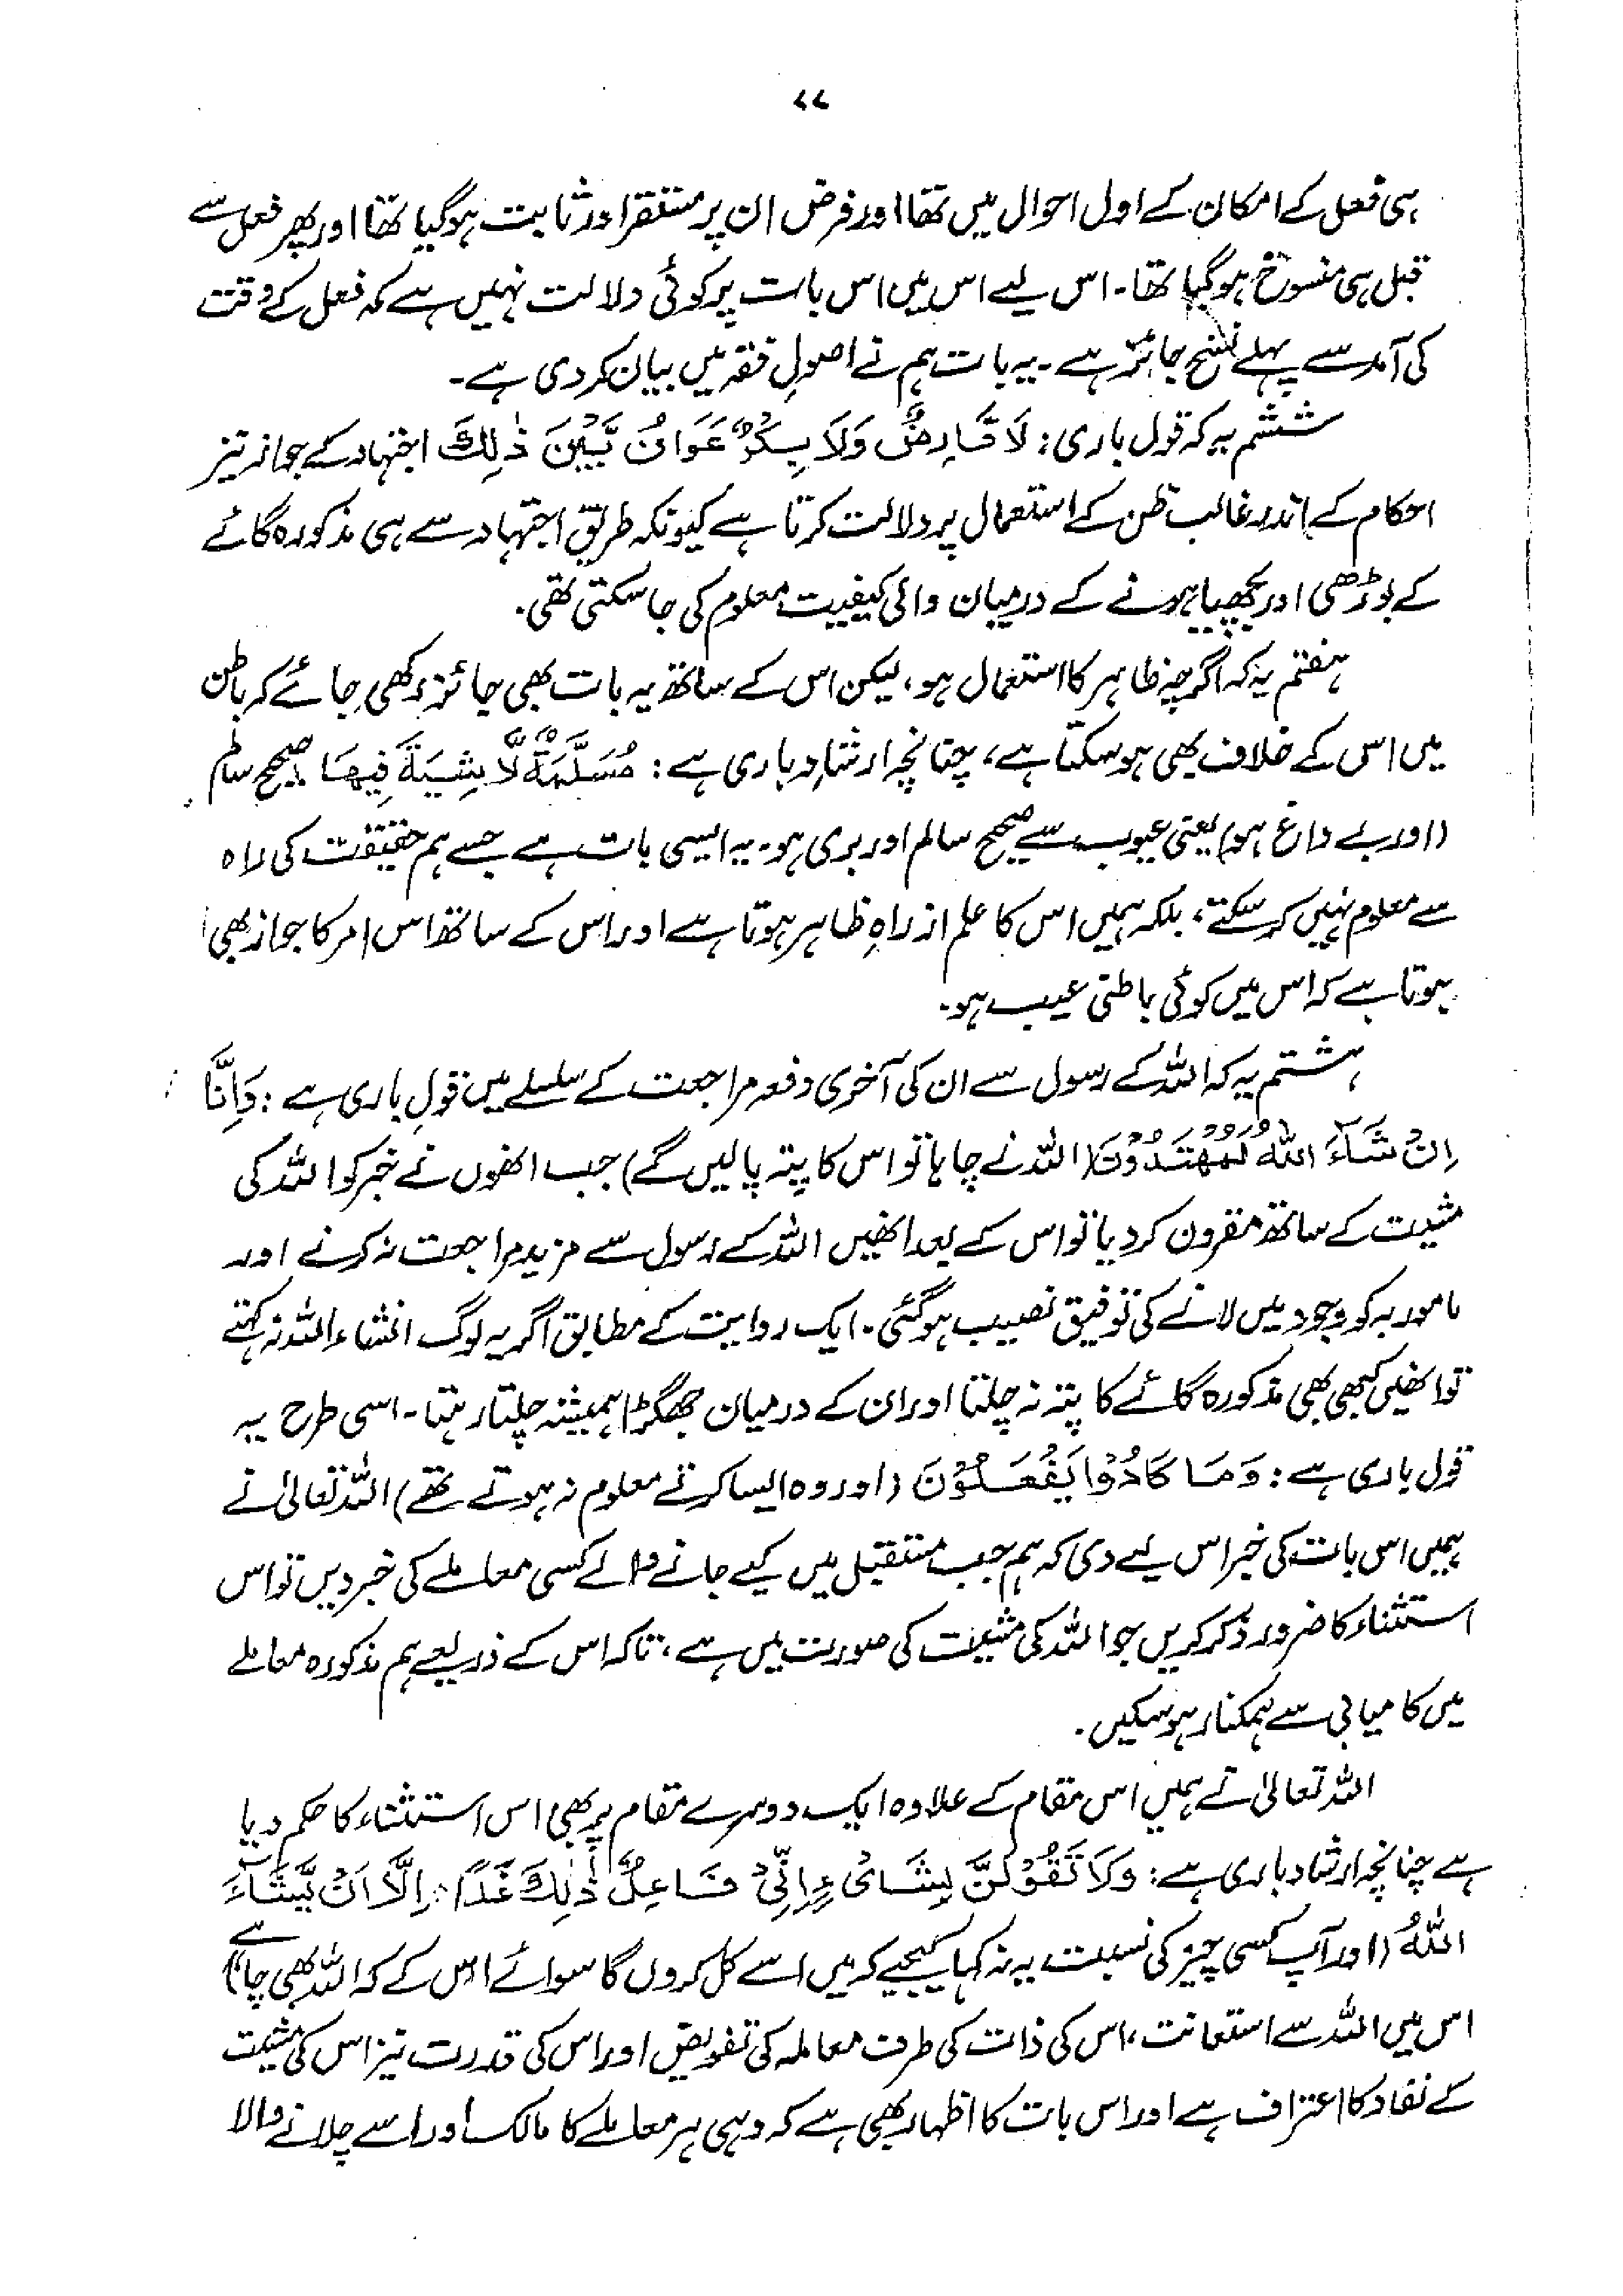 ۷۷
ہی فعل کے امکان کے اول احوال میں تھا اور فرض ان پر مستقر اور ثابت ہوگیا تھا اور پھر فعل سے
قبل ہی منسوخ ہوگیا تھا۔ اس لیے اس میں اس بات پر کوئی دلالت نہیں ہے کہ فعل کے وقت
کی آمد سے پہلے نسخ جائز ہے۔ یہ بات ہم نے اصولِ فقہ میں بیان کر دی ہے۔
ششم یہ کہ قول باری: لَا فَارِضٌ وَلَا بِكْرٌ عَوَانٌ بَيْنَ ذٰلِكَ اجتہاد کے جواز نیز
احکام کے اندر غالب ظن کے استعمال پر دلالت کرتا ہے کیونکہ طریق اجتہاد سے ہی مذکورہ گائے
کے بوڑھی اور بچھیا ہونے کے درمیان والی کیفیت معلوم کی جاسکتی تھی۔
ہفتم یہ کہ اگرچہ ظاہر کا استعمال ہو، لیکن اس کے ساتھ یہ بات بھی جائز رکھی جائے کہ باطن
میں اس کے خلاف بھی ہوسکتا ہے، چنانچہ ارشادِ باری ہے: مُسَلَّمَةٌ لَّا شِيَةَ فِيهَا (صحیح سالم
(اور بے داغ ہو) یعنی عیوب سے صحیح سالم اور بری ہو۔ یہ ایسی بات ہے جسے ہم حقیقت کی راہ
سے معلوم نہیں کرسکتے، بلکہ ہمیں اس کا علم از راہِ ظاہر ہوتا ہے اور اس کے ساتھ اس امر کا جواز بھی
ہوتا ہے کہ اس میں کوئی باطنی عیب ہو۔
ہشتم یہ کہ اللہ کے رسول سے ان کی آخری دفعہ مراجعت کے سلسلے میں قولِ باری ہے: وَاِنَّا
اِنْ شَآءَ اللّٰهُ لَمُهْتَدُوْنَ (اللہ نے چاہا تو اس کا پتہ پالیں گے) جب انھوں نے خبر کو اللہ کی
مشیت کے ساتھ مقرون کر دیا تو اس کے بعد انھیں اللہ کے رسول سے مزید مراجعت نہ کرنے اور
مامور بہ کو وجود میں لانے کی توفیق نصیب ہوگئی۔ ایک روایت کے مطابق اگر یہ لوگ انشاء اللہ نہ کہتے
تو انھیں کبھی بھی مذکورہ گائے کا پتہ نہ چلتا اور ان کے درمیان جھگڑا ہمیشہ چلتا رہتا۔ اسی طرح یہ
قول باری ہے: وَمَا كَادُوْا يَفْعَلُوْنَ (اور وہ ایسا کرتے معلوم نہ ہوتے تھے) اللہ تعالیٰ نے
ہمیں اس بات کی خبر اس لیے دی کہ ہم جب مستقبل میں کیے جانے والے کسی معاملے کی خبر دیں تو اس
استثناء کا ضرور ذکر کریں جو اللہ کی مشیت کی صورت میں ہے، تاکہ اس کے ذریعے ہم مذکورہ معاملے
میں کامیابی سے ہمکنار ہو سکیں۔
اللہ تعالیٰ نے ہمیں اس مقام کے علاوہ ایک دوسرے مقام پر بھی اس استثناء کا حکم دیا
ہے چنانچہ ارشاد باری ہے: وَلَا تَقُوْلَنَّ لِشَائْ ءٍ اِنِّيْ فَاعِلٌ ذٰلِكَ غَدًا۔ اِلَّا اَنْ يَّشَآءَ
اللّٰهُ (اور آپ کسی چیز کی نسبت یہ نہ کہا کیجیے کہ میں اسے کل کروں گا سوائے اس کے کہ اللہ بھی چاہے)
اس میں اللہ سے استعانت، اس کی ذات کی طرف معاملہ کی تفویض اور اس کی قدرت نیز اس کی مشیت
کے نفاد کا اعتراف ہے اور اس بات کا اظہار بھی ہے کہ وہی ہر معاملے کا مالک اور اسے چلانے والا